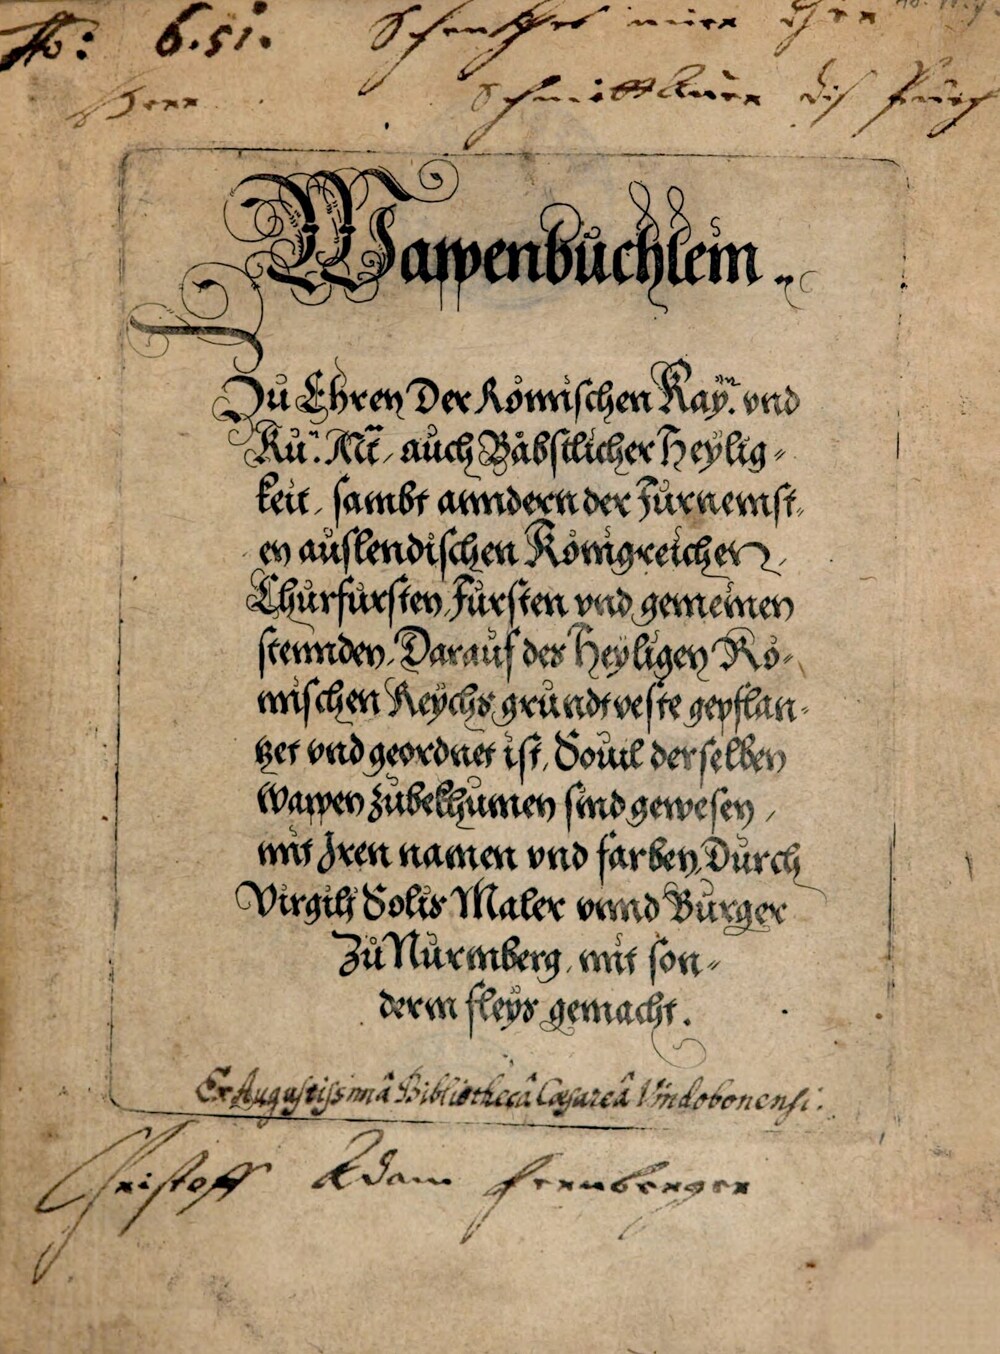 Ao: 6.51. Schenkhet mier Herr
Herr Schmittauer dis Puech
Wappenbüchlein.
Zu Ehren Der Römischen Kay.n vnd
Kü.n Mt, auch Bäbstlicher Heylig-
keit, sambt anndern der Fürnemst,
en auslendischen Königreichen,
Churfursten, Fürsten vnd gemeinen
stennden, Darauf des Heyligen Rö-
mischen Reychs gründtveste gepflan-
tzet vnd geordnet ist, Souil derselben
wappen zubekhumen sind gewesen,
mit Iren namen vnd farben, Durch
Virgilj Solis Maler vnnd Burger
Zu Nürmberg, mit son-
derm fleys gemacht.
Ex Augustissimâ Bibliothecâ Cæsareâ Vindobonensi.
Christoff Adam Fernberger